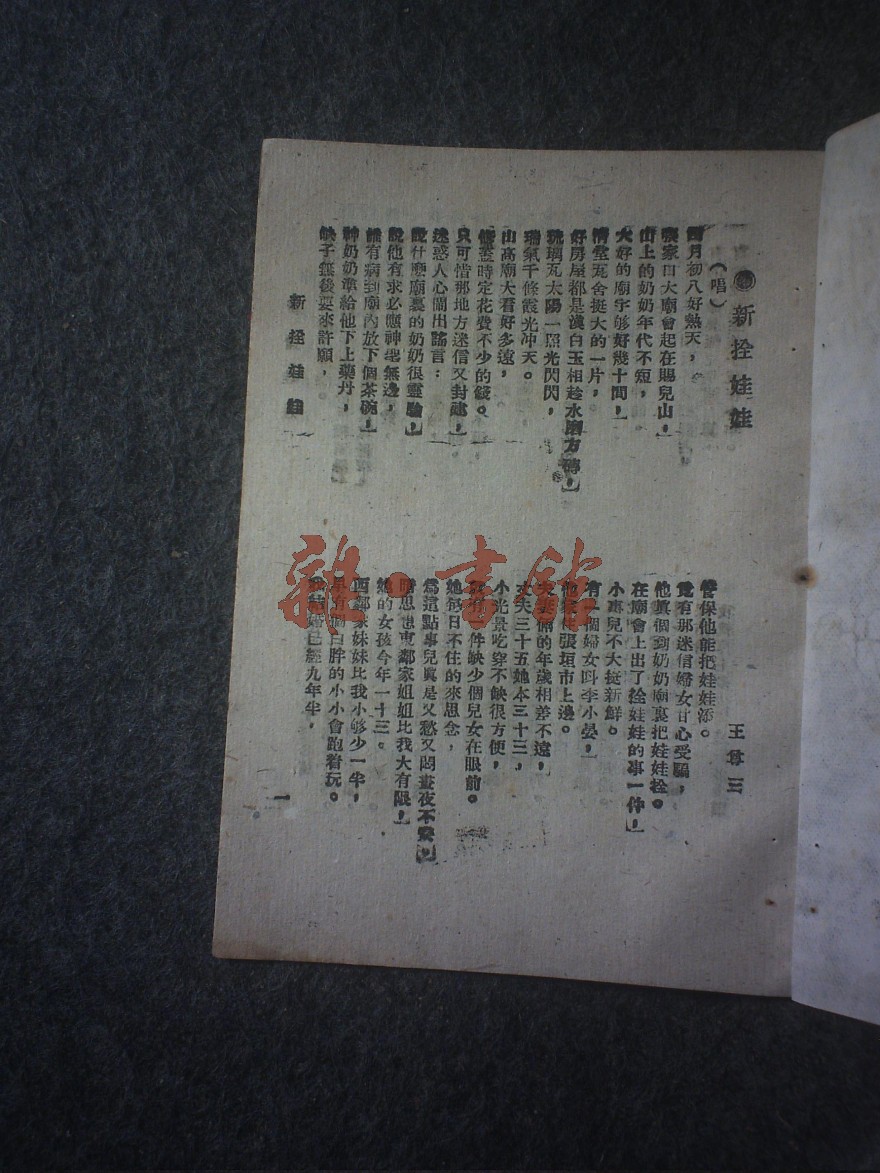 新拴娃娃
王尊三
（唱）
四月初八好熱天，
張家口大廟會起在賜兒山，
山上的奶奶年代不短，
大好的廟宇够好幾十間，
清堂瓦舍挺大的一片，
好房屋都是漢白玉相趁水磨方磚，
琉璃瓦太陽一照光閃閃，
瑞氣千條霞光冲天。
山高廟大看好多遠，
修蓋時定花費不少的錢。
只可惜那地方迷信又封建，
迷惑人心鬧出謠言：
說什麽廟裏的奶奶很靈驗，
說他有求必應神靈無邊，
誰有病到廟內放下個茶碗，
神奶奶準給他下上藥丹，
缺子無後要來許願，
管保他能把娃娃添。
竟有那迷信婦女甘心受騙，
他真個到奶奶廟裏把娃娃拴。
在廟會上出了拴娃娃的事一件，
小事兒不大挺新鮮。
有一個婦女叫李小晏，
他家住張垣市上邊。
夫妻倆的年歲相差不遠，
丈夫三十五她本三十三，
小光景吃穿不缺很方便，
件缺少個兒女在眼前。
她每日不住的來思念，
爲這點事兒眞是又愁又悶晝夜不安。
暗思想東鄰家姐姐比我大有限，
她的女孩今年一十三。
西鄰家妹妹比我小够少一半，
早有個白胖的小小會跑着玩。
結婚已經九年半，
新拴娃娃
一
雜·書館